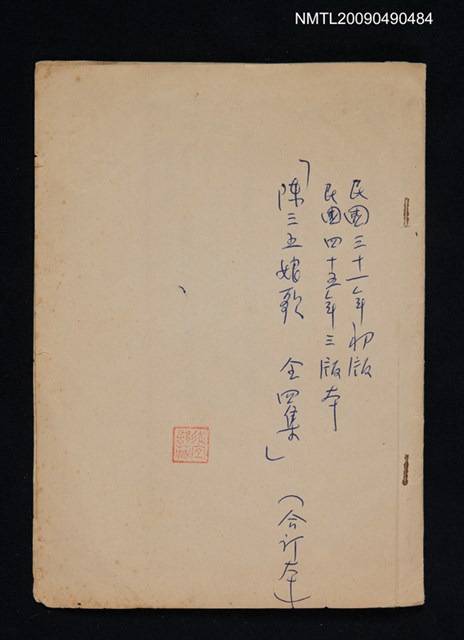 NMTL20090490484
民國三十一年初版
民國四十五年三版本
「陳三五娘歌 全四集」（合订本）